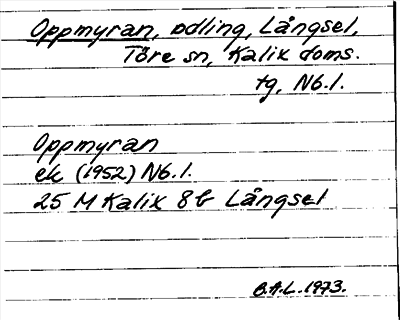 Oppmyran, odling, Långsel,
Töre sn, Kalix doms.
tg, Nb.l.
Oppmyran
ek (1952) Nb.l.
25 M Kalix 8b Långsel
B.A.L. 1973.